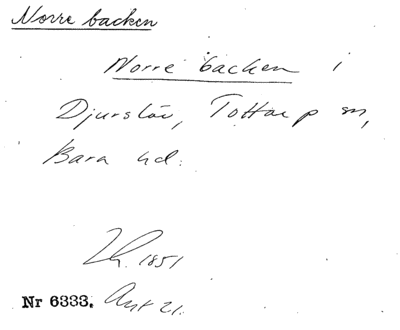 Norre backen
Norre backen i
Djurslöv, Tottarp sn,
Bara hd.
1851
Nr 6333. Akt 21.